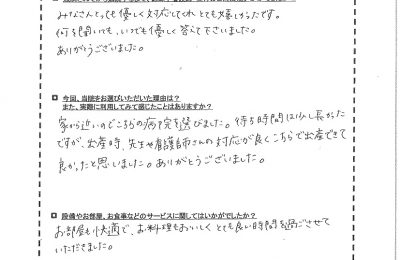 みなさんとっても優しく対応してくれ とても嬉しかったです。
何を聞いても、いつでも優しく答えて下さいました。
ありがとうございました。
■ 今回、当院をお選びいただいた理由は？
また、実際に利用してみて感じたことはありますか？
家から近いのでこちらの病院を選びました。待ち時間は少し長かった
ですが、出産時、先生や看護師さんの対応が良くこちらで出産できて
良かったと思いました。ありがとうございました。
■ 設備やお部屋、お食事などのサービスに関してはいかがでしたか？
お部屋も快適で、お料理もおいしく とても良い時間を過ごさせて
いただきました。